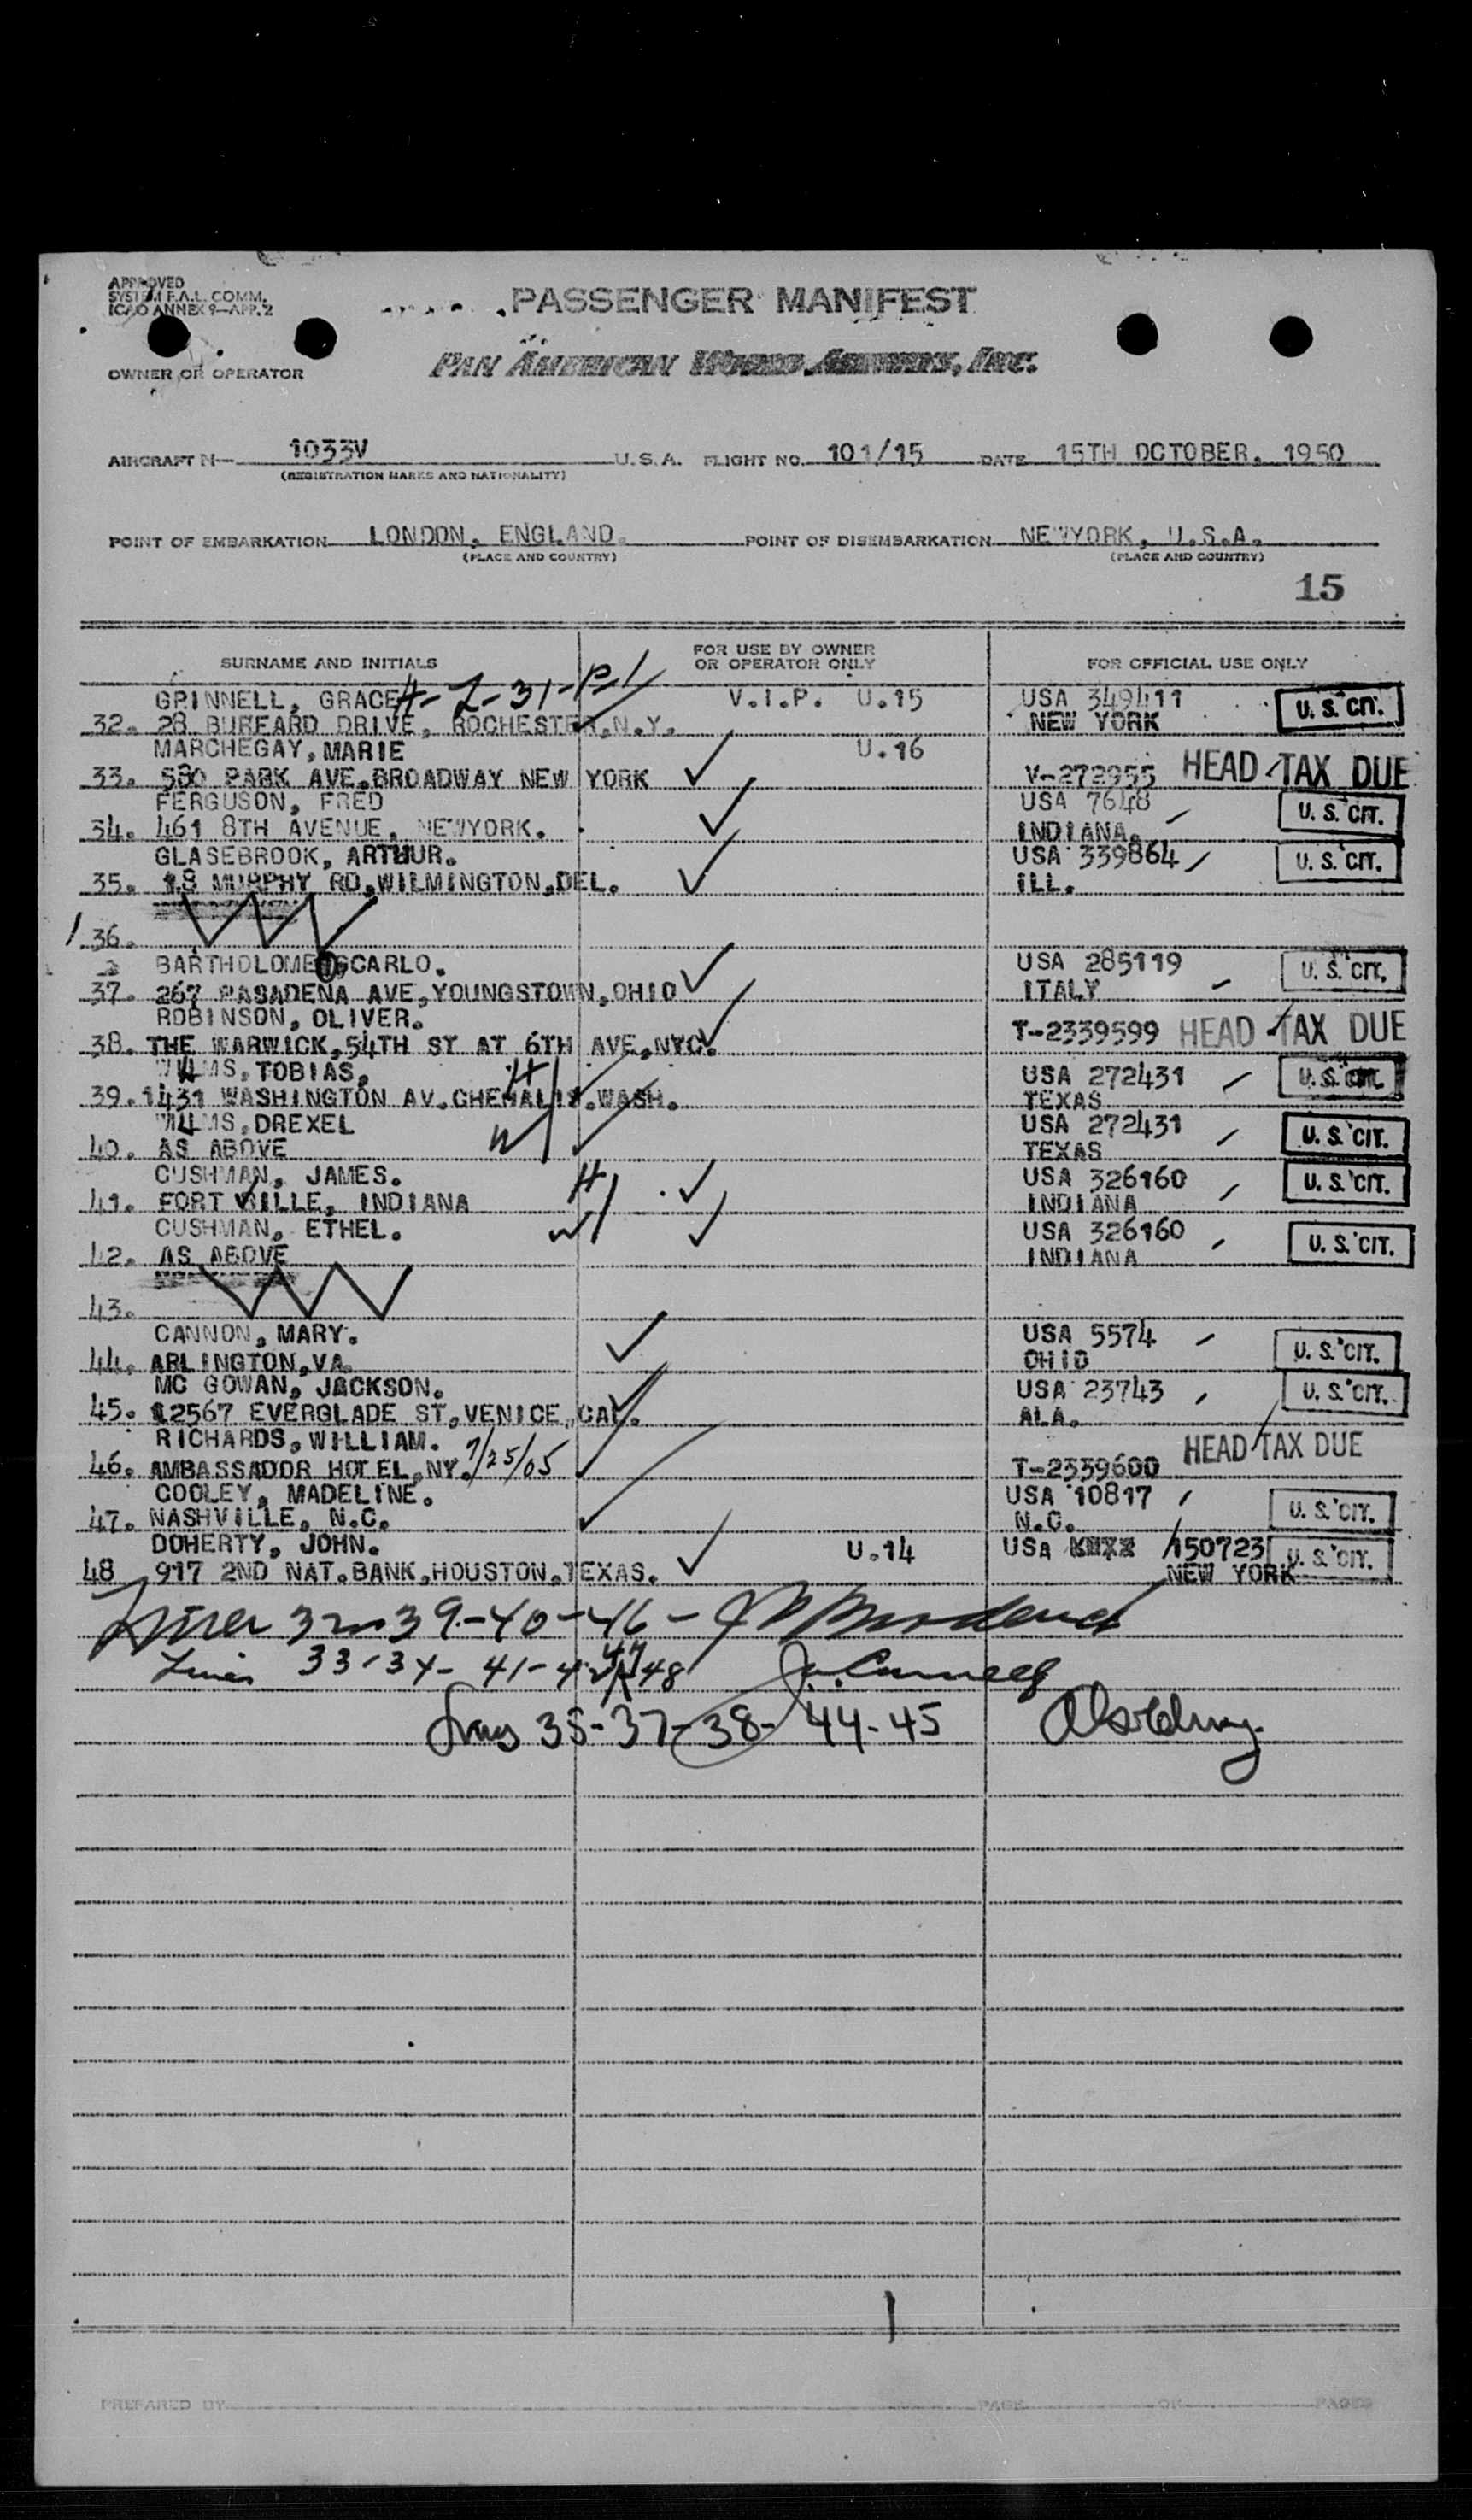 APPROVED
SYSTEM F.A.L. COMM.
ICAO ANNEX 9—APP. 2
PASSENGER MANIFEST
OWNER OR OPERATOR
PAN AMERICAN WORLD AIRWAYS, INC.
AIRCRAFT N— 1033V U.S.A. FLIGHT NO. 101/15 DATE 15TH OCTOBER. 1950
(REGISTRATION MARKS AND NATIONALITY)
POINT OF EMBARKATION LONDON, ENGLAND. POINT OF DISEMBARKATION NEWYORK, U.S.A.
(PLACE AND COUNTRY) (PLACE AND COUNTRY)
15
SURNAME AND INITIALS FOR USE BY OWNER OR OPERATOR ONLY FOR OFFICIAL USE ONLY
GRINNELL, GRACE V.I.P. U.15 USA 349411 U.S. CIT.
32. 28 BURFARD DRIVE, ROCHESTER,N.Y. NEW YORK
MARCHEGAY, MARIE U.16
33. 580 PARK AVE.BROADWAY NEW YORK V-272955 HEAD TAX DUE
FERGUSON, FRED USA 7648 U.S. CIT.
34. 461 8TH AVENUE, NEWYORK. INDIANA.
GLASEBROOK, ARTHUR. USA 339864 U.S. CIT.
35. 18 MURPHY RD,WILMINGTON,DEL. ILL.
36.
BARTHOLOMEO,CARLO. USA 285119 U.S. CIT.
37. 267 PASADENA AVE,YOUNGSTOWN,OHIO ITALY
ROBINSON, OLIVER. T-2339599 HEAD TAX DUE
38. THE WARWICK,54TH ST AT 6TH AVE,NYC.
WILMS, TOBIAS. H USA 272431 U.S. CIT.
39. 1431 WASHINGTON AV.CHEHALIS.WASH. TEXAS
WILMS, DREXEL W USA 272431 U.S. CIT.
40. AS ABOVE TEXAS
CUSHMAN, JAMES. H USA 326160 U.S. CIT.
41. FORT VILLE, INDIANA INDIANA
CUSHMAN, ETHEL. W USA 326160 U.S. CIT.
42. AS ABOVE INDIANA
43.
CANNON, MARY. USA 5574 U.S. CIT.
44. ARLINGTON,VA. OHIO
MC GOWAN, JACKSON. USA 23743 U.S. CIT.
45. 12567 EVERGLADE ST,VENICE,CAL. ALA.
RICHARDS, WILLIAM. HEAD TAX DUE
46. AMBASSADOR HOTEL,NY. 7/25/05 T-2339600
COOLEY, MADELINE. USA 10817 U.S. CIT.
47. NASHVILLE, N.C. N.C.
DOHERTY, JOHN. U.14 USA 150723 U.S. CIT.
48 917 2ND NAT.BANK,HOUSTON,TEXAS. NEW YORK
Lines 32-39-40-46-
Lines 33-34-41-42-47-48
Lines 35-37-38-44-45
PREPARED BY PAGE OF PAGES